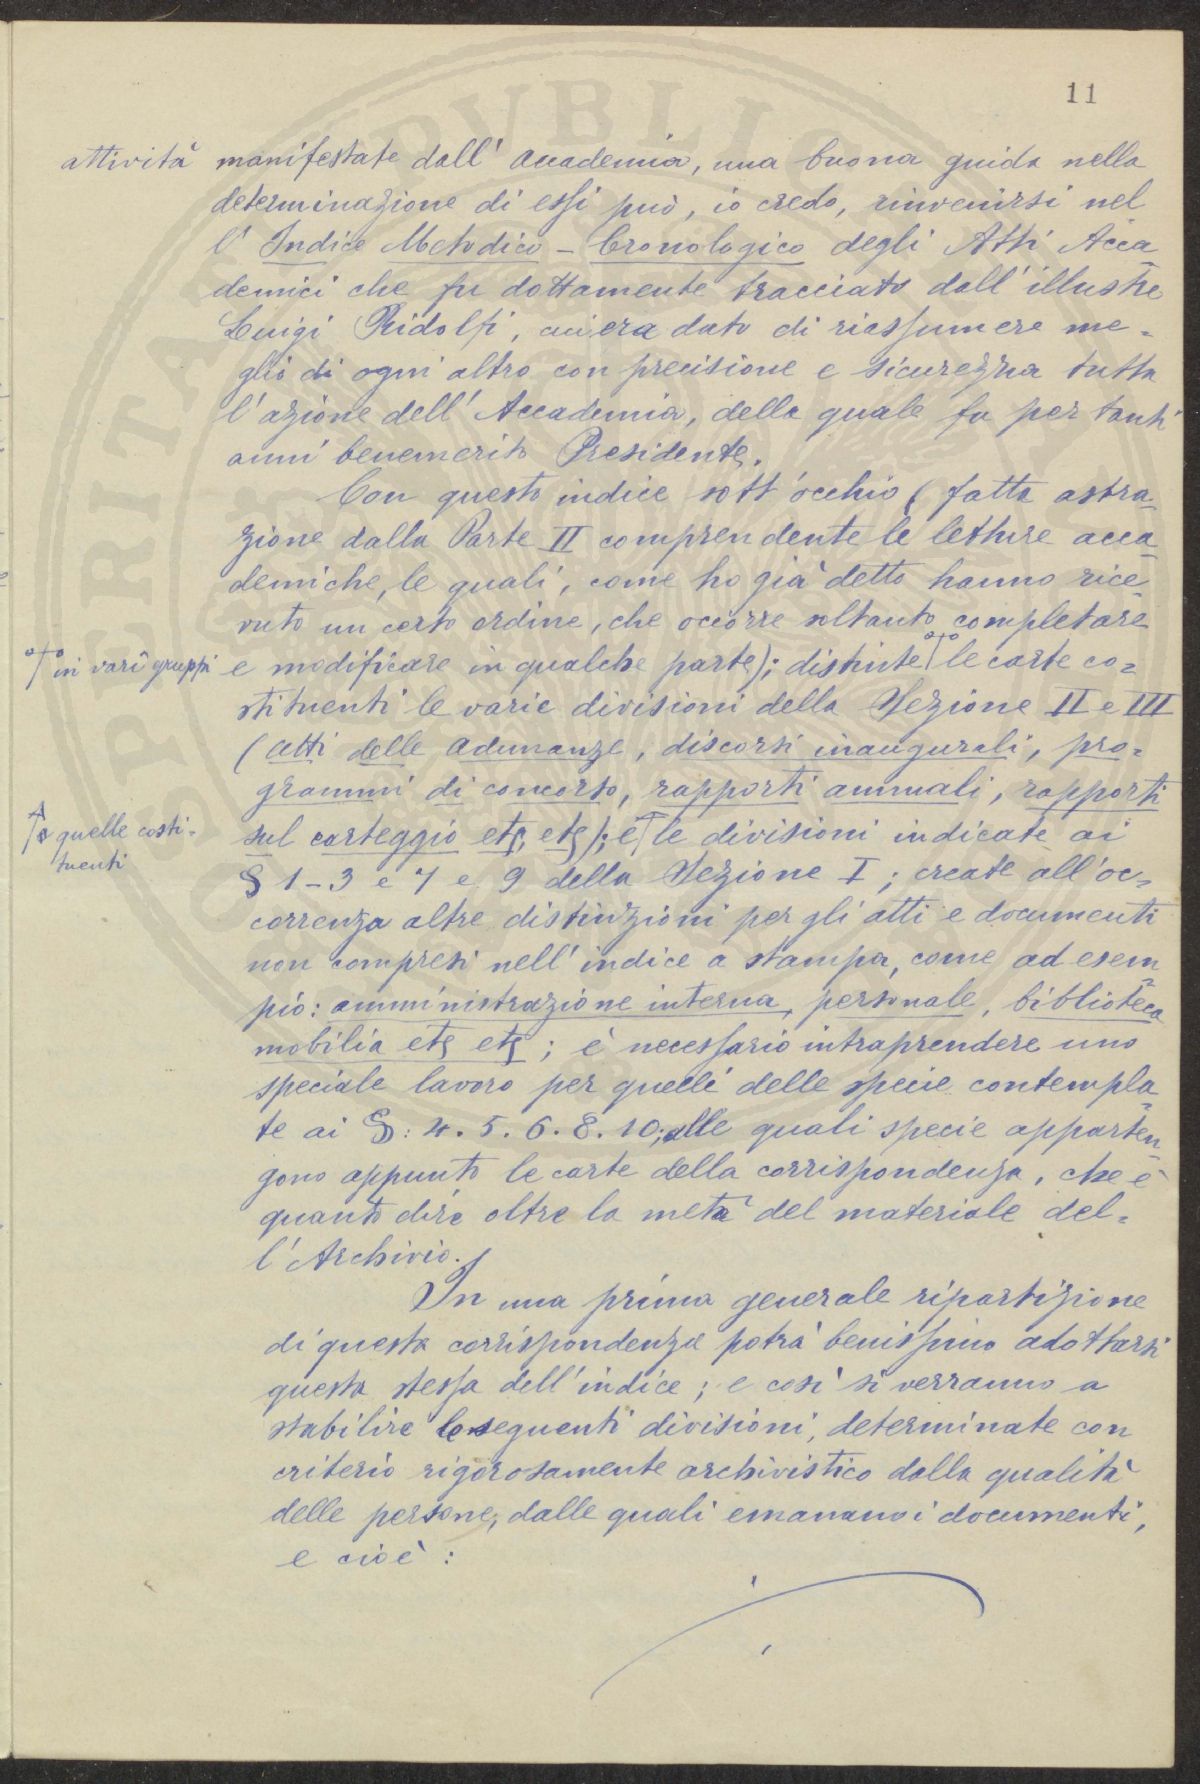 11
attività manifestate dall' Accademia, una buona guida nella
determinazione di essi può, io credo, rinvenirsi nel
l' Indice Metodico - Cronologico degli Atti Acca
demici che fu dottamente tracciato dall' illustre
Luigi Ridolfi, cui era dato di riassumere me=
glio di ogni altro con precisione e sicurezza tutta
l' azione dell' Accademia, della quale fu per tanti
anni benemerito Presidente.
Con questo indice sott' occhio (fatta astra-
zione dalla Parte II comprendente le letture acca
demiche, le quali, come ho già detto hanno rice
vuto un certo ordine, che occorre soltanto completare
in vari gruppi
e modificare in qualche parte); distinte le carte co=
stituenti le varie divisioni della Sezione II e III
(atti delle adunanze, discorsi inaugurali, pro=
grammi di concorso, rapporti annuali, rapporti
sul carteggio etc, etc); e le divisioni indicate ai
quelle costi=
tuenti
§ 1-3 e 7 e 9 della Sezione I; create all'oc=
correnza altre distinzioni per gli atti e documenti
non compresi nell' indice a stampa, come ad esem
pio: amministrazione interna, personale, biblioteca
mobilia etc etc; è necessario intraprendere uno
speciale lavoro per quelli delle specie contempla
te ai §: 4. 5. 6. 8. 10; alle quali specie apparten
gono appunto le carte della corrispondenza, che è
quanto dire oltre la metà del materiale del=
l' Archivio.
In una prima generale ripartizione
di questa corrispondenza potrà benissimo adottarsi
questa stessa dell' indice; e così si verranno a
stabilire le seguenti divisioni, determinate con
criterio rigorosamente archivistico dalla qualità
delle persone, dalle quali emanano i documenti,
e cioè: